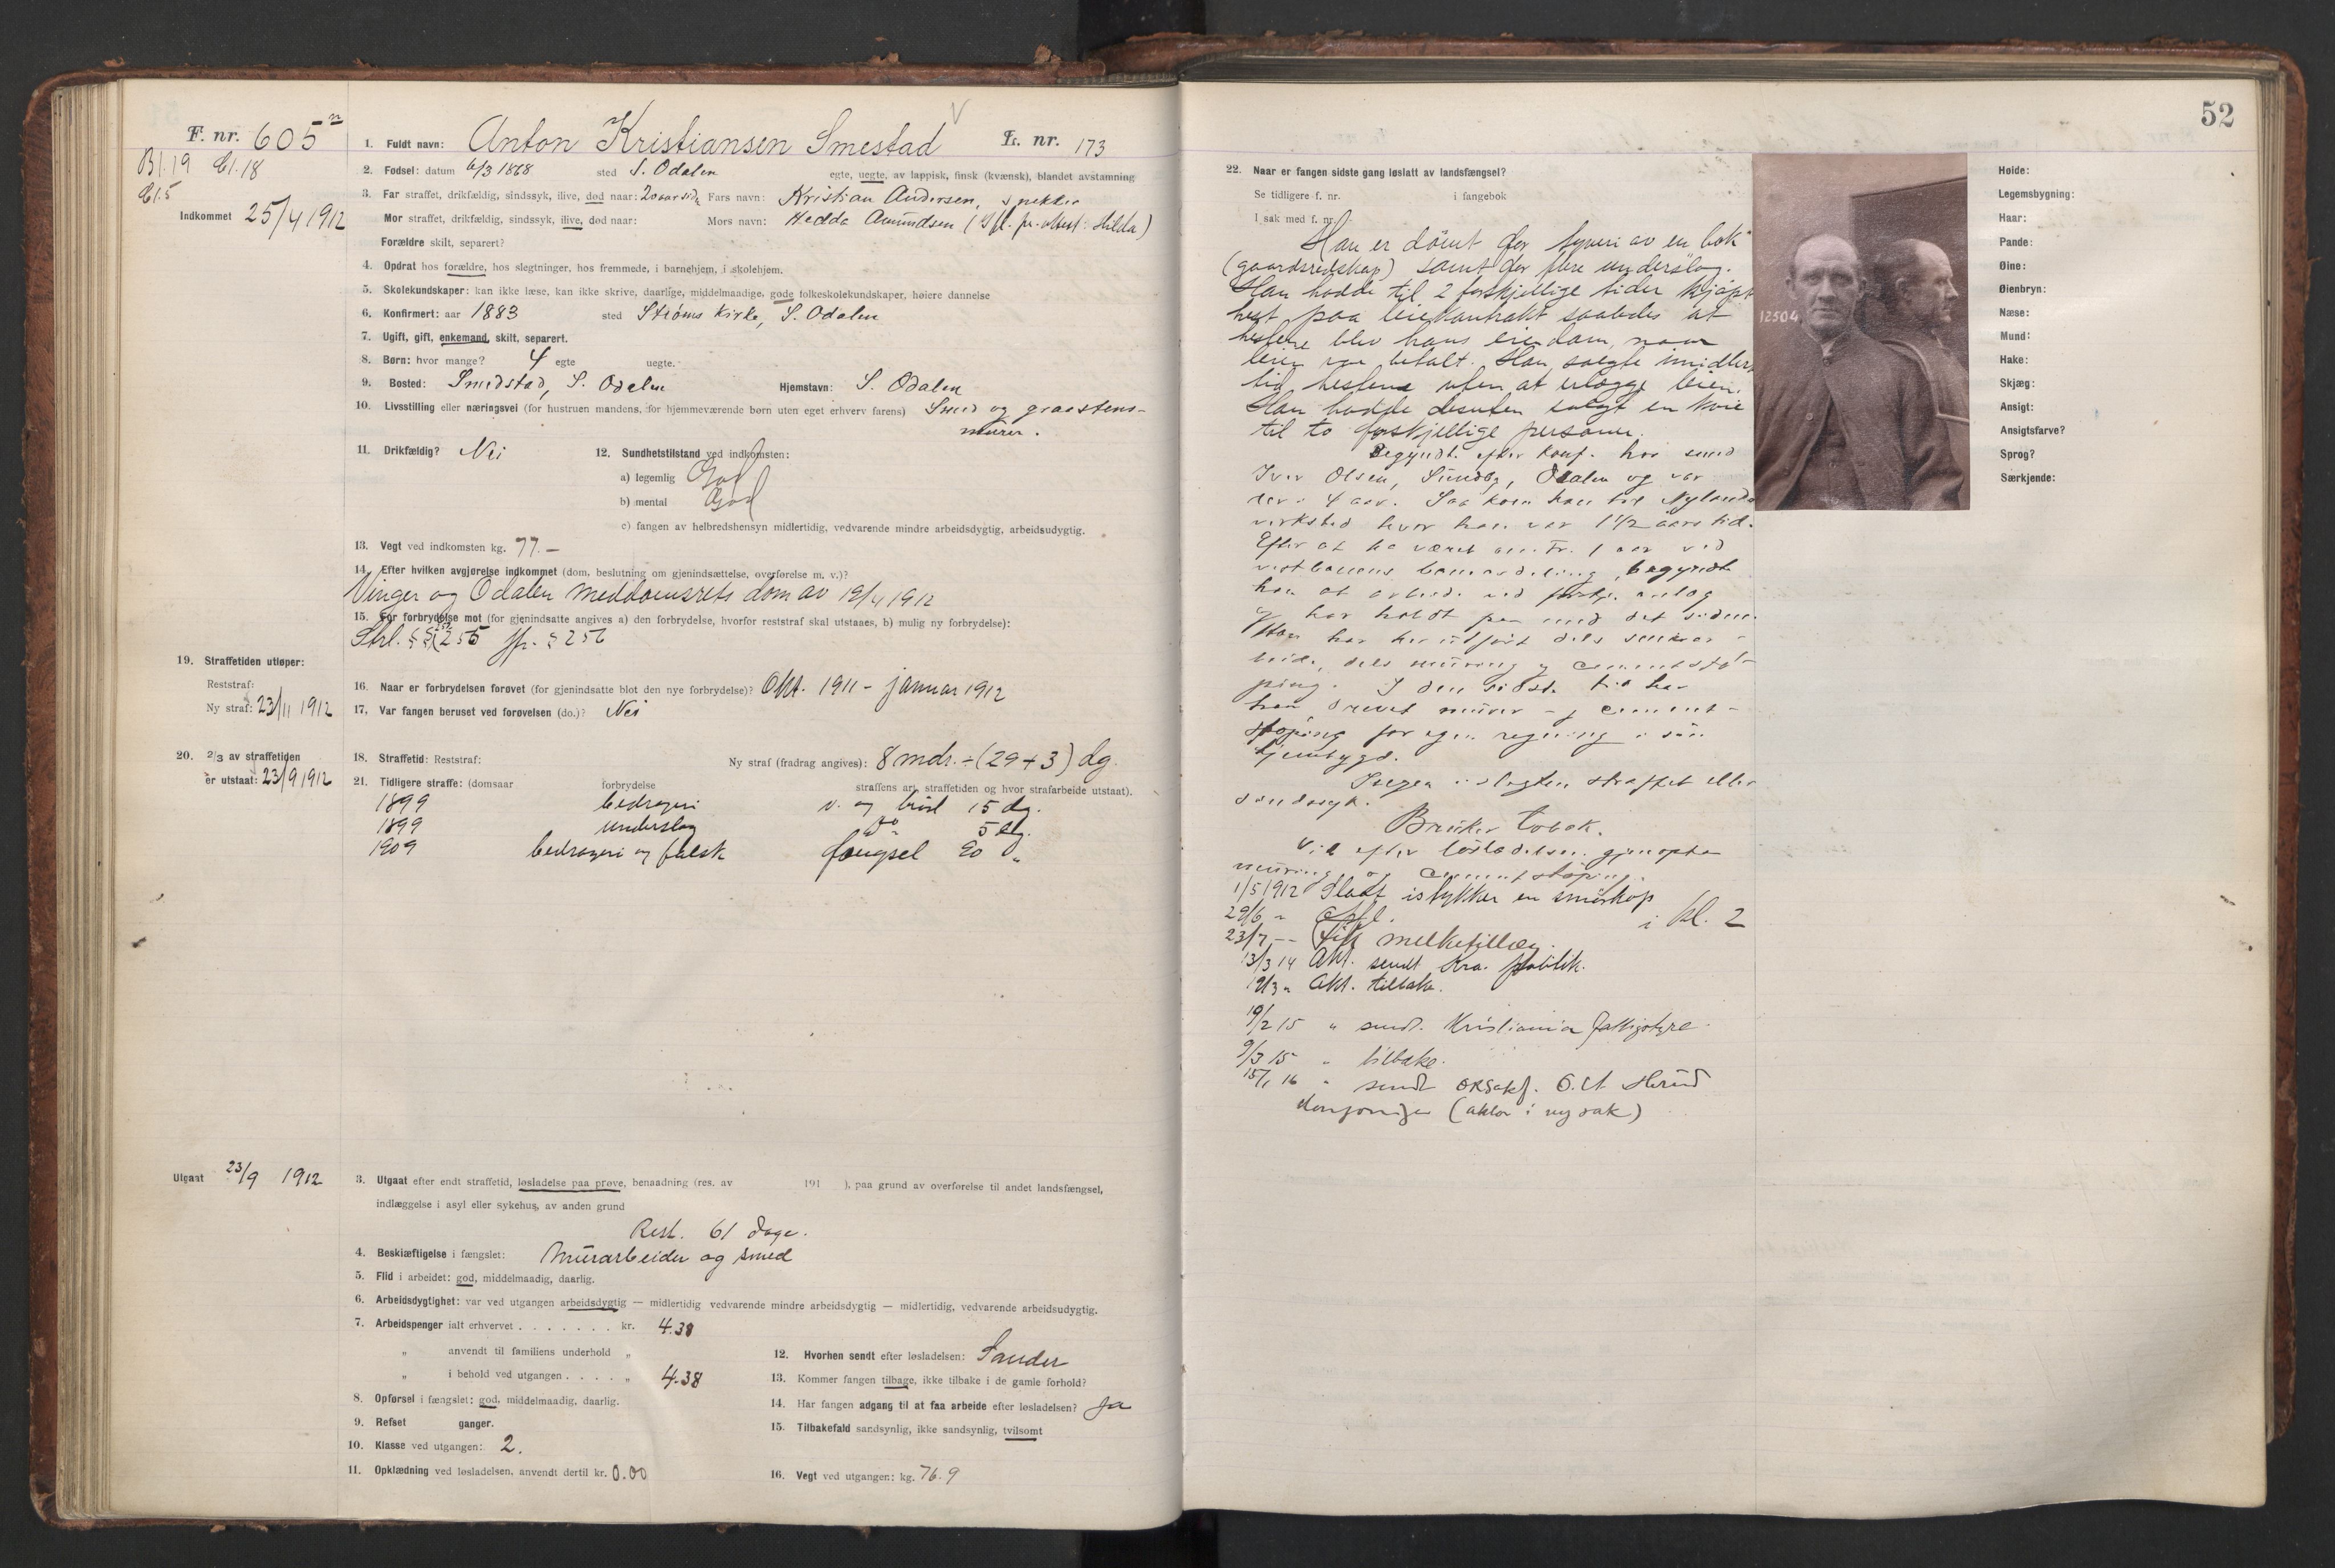 F. nr. 605
Bl. 19 Cl. 18
Cl. 5
Indkommet 25/4 1912
1. Fuldt navn: Anton Kristiansen Smestad L. nr. 173
2. Fødsel: datum 6/3 1868 sted S. Odalen egte, uegte, av lappisk, finsk (kvænsk), blandet avstamning
3. Far straffet, drikfældig, sindssyk, ilive, død naar: 20 aar sid. Fars navn: Kristian Andersen, snekker
Mor straffet, drikfældig, sindssyk, ilive, død naar: Mors navn: Hedda Amundsen (Ifl. pr. attest: Hilda)
Forældre skilt, separert?
4. Opdrat hos forældre, hos slegtninger, hos fremmede, i barnehjem, i skolehjem.
5. Skolekundskaper: kan ikke læse, kan ikke skrive, daarlige, middelmaadige, gode folkeskolekundskaper, høiere dannelse
6. Konfirmert: aar 1883 sted Strøms Kirke, S. Odalen
7. Ugift, gift, enkemand, skilt, separert.
8. Børn: hvor mange? 4 egte uegte.
9. Bosted: Smedstad, S. Odalen Hjemstavn: S. Odalen
10. Livsstilling eller næringsvei (for hustruen mandens, for hjemmeværende børn uten eget erhverv farens) Smed og graastens-
murer.
11. Drikfældig? Nei 12. Sundhetstilstand ved indkomsten:
a) legemlig God
b) mental God
c) fangen av helbredshensyn midlertidig, vedvarende mindre arbeidsdygtig, arbeidsudygtig.
13. Vegt ved indkomsten kg. 77.—
14. Efter hvilken avgjørelse indkommet (dom, beslutning om gjenindsættelse, overførelse m. v.)?
Vinger og Odalen meddomsrets dom av 19/4 1912
15. For forbrydelse mot (for gjenindsatte angives a) den forbrydelse, hvorfor reststraf skal utstaaes, b) mulig ny forbrydelse):
Strl. §§ 255 jfr. § 256
19. Straffetiden utløper:
Reststraf:
Ny straf: 23/11 1912
16. Naar er forbrydelsen forøvet (for gjenindsatte blot den nye forbrydelse)? Okt. 1911 - januar 1912
17. Var fangen beruset ved forøvelsen (do.)? Nei
20. 2/3 av straffetiden
er utstaat: 23/9 1912
18. Straffetid: Reststraf: Ny straf (fradrag angives): 8 mdr. ÷ (29 + 3) dg.
21. Tidligere straffe: (domsaar forbrydelse straffens art, straffetiden og hvor strafarbeide utstaat).
1899 bedrageri v. og brød 15 dg.
1899 underslag do 5 dg.
1909 bedrageri og falsk fængsel 90 "
Utgaat 23/9 1912
3. Utgaat efter endt straffetid, løsladelse paa prøve, benaadning (res. av 191 ), paa grund av overførelse til andet landsfængsel,
indlæggelse i asyl eller sykehus, av anden grund
Rest. 61 dage.
4. Beskjæftigelse i fængslet: Murarbeider og smed
5. Flid i arbeidet: god, middelmaadig, daarlig.
6. Arbeidsdygtighet: var ved utgangen arbeidsdygtig — midlertidig vedvarende mindre arbeidsdygtig — midlertidig, vedvarende arbeidsudygtig.
7. Arbeidspenger ialt erhvervet . . . . . . . kr. 4.38
" anvendt til familiens underhold "
" i behold ved utgangen . . . . . " 4.38
8. Opførsel i fængslet: god, middelmaadig, daarlig.
9. Refset ganger.
10. Klasse ved utgangen: 2.
11. Opklædning ved løsladelsen, anvendt dertil kr. 0.00
12. Hvorhen sendt efter løsladelsen: Sander
13. Kommer fangen tilbage, ikke tilbake i de gamle forhold?
14. Har fangen adgang til at faa arbeide efter løsladelsen? Ja
15. Tilbakefald sandsynlig, ikke sandsynlig, tvilsomt
16. Vegt ved utgangen: kg. 76.9
52
22. Naar er fangen sidste gang løslatt av landsfængsel?
Se tidligere f. nr. i fangebok
I sak med f. nr.
Han er dömt for tyveri av en bok
(gaardsredskap) samt for flere underslag.
Han hadde til 2 forskjellige tider kjøpt
hest paa leiekontrakt saaledes at
hestene blev hans eiendom, naar
leien var betalt. Han solgte imidler
tid hestene uten at erlægge leien.
Han hadde desuten solgt en kvie
til to forskjellige personer.
Begyndte efter konf. hos smed
Iver Olsen, Sundby, Odalen og var
der i 4 aar. Saa kom han til Nylands
verksted hvor han var 1 1/2 aars tid.
Efter at ha været 1 aar ved
begyndte
han at arbeide ved anlæg
og har holdt paa med det siden.
Han har her utført dels smear-
beide, dels muring og cementstø-
ping. I den sidste tid har
han drevet murer- og cement-
støping for egen regning i sin
hjembygd.
Ingen i slegten straffet eller
sindssyk.
Bruker tobak.
Vil efter løsladelsen gjenopta
muring og cementstøping.
1/5 1912 Slaat istykker en smørkop
29/6 " Opfl. i kl. 2
23/7 " Fik melketillæg.
13/3 14 Akt. sendt Kra. politik.
19/3 " Akt. tilbake.
19/2 15 " sendt Kristiania fattigstyre.
9/3 15 " tilbake.
15/1 16 " sendt O. A.
Kongsvinger (aktor i ny sak)
12504
Høide:
Legemsbygning:
Haar:
Pande:
Øine:
Øienbryn:
Næse:
Mund:
Hake:
Skjæg:
Ansigt:
Ansigtsfarve?
Sprog?
Særkjende: